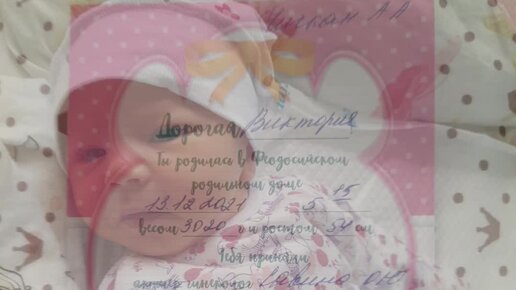 Дорогая Виктория
Ты родилась в Феодосийском
родильном доме
13.12.2021 5 15
весом 3020 г и ростом 54 см
Тебя приняли
акушер гинеколог